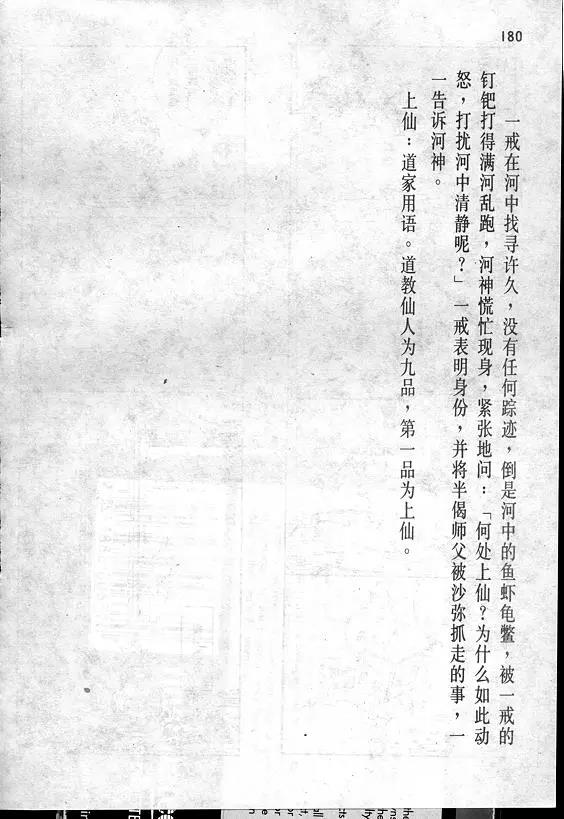 180
一戒在河中找寻许久，没有任何踪迹，倒是河中的鱼虾龟鳖，被一戒的
钉钯打得满河乱跑，河神慌忙现身，紧张地问：「何处上仙？为什么如此动
怒，打扰河中清静呢？」一戒表明身份，并将半偈师父被沙弥抓走的事，一
一告诉河神。
上仙：道家用语。道教仙人为九品，第一品为上仙。